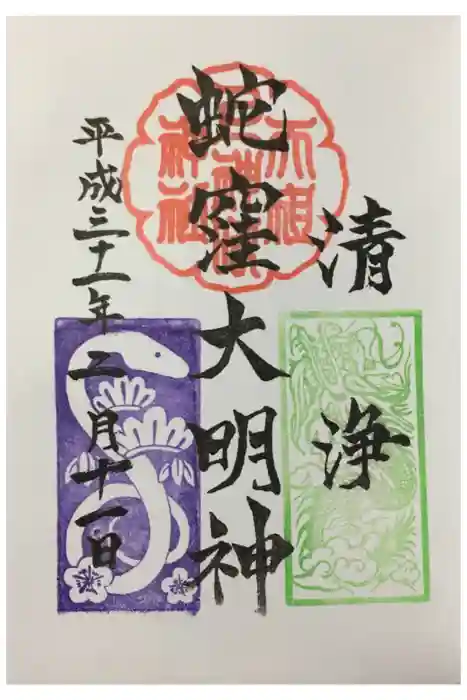 清浄
蛇窪大明神
平成三十一年二月十一日